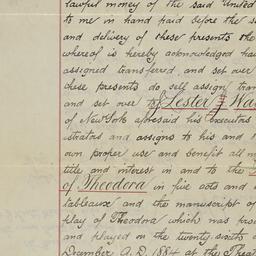 lawful money of the said United
to me in hand paid before the
and delivery of these presents the
whereof is hereby acknowledged
assigned transferred, and set over
these presents do sell assign
and set over to Lester
of New York aforesaid his executors
strators and assigns to his and
own proper use and benefit all
title and interest in and to the
of Theodora in five acts and
tableaux and the manuscript of
play of Theodora which was
and played on the twenty sixth
December A.D. 1884 at the